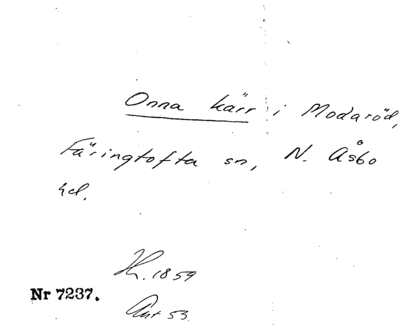 Onna kärr i Modaröd,
Färingtofta sn, N. Åsbo
hd.
H. 1859
Nr 7237.
Ant 53.